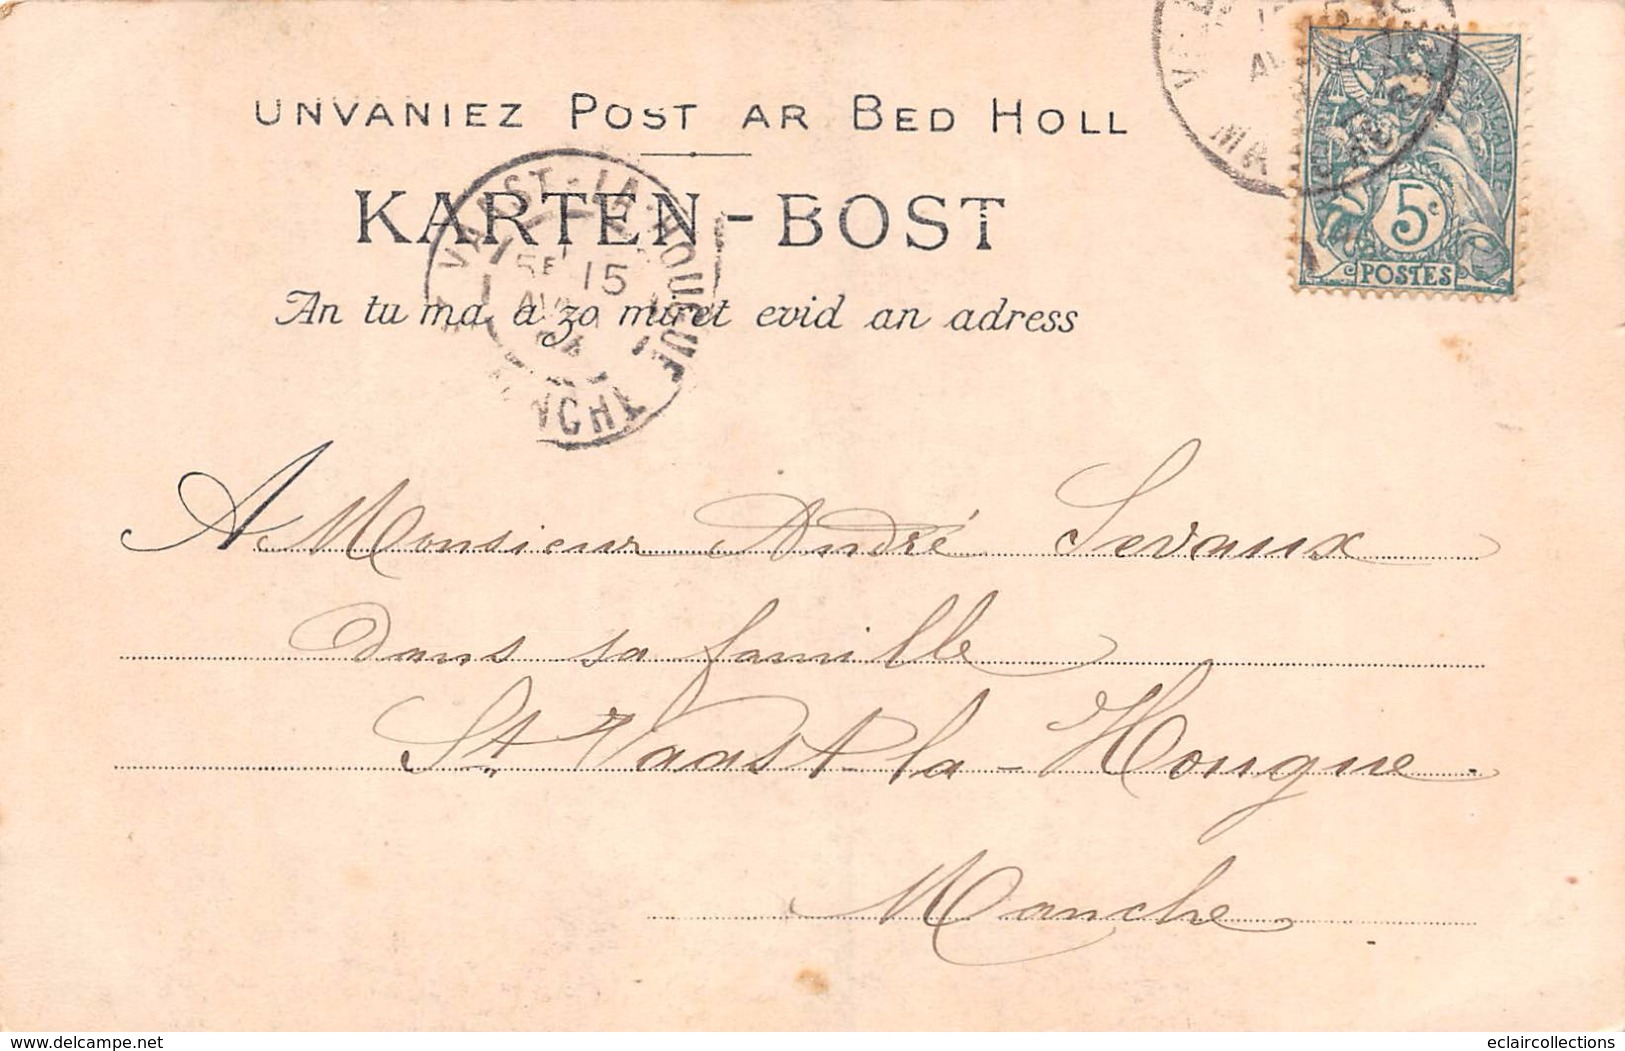 UNVANIEZ POST AR BED HOLL
KARTEN-BOST
An tu ma a zo miret evid an adress
ST VAAST-LA-HOUGUE
1E
15
AVRIL
04
MANCHE
5c
POSTES
A Monsieur André Levaux
dans sa famille
St Vaast-la-Hougue.
Manche
www.delcampe.net
eclaircollections